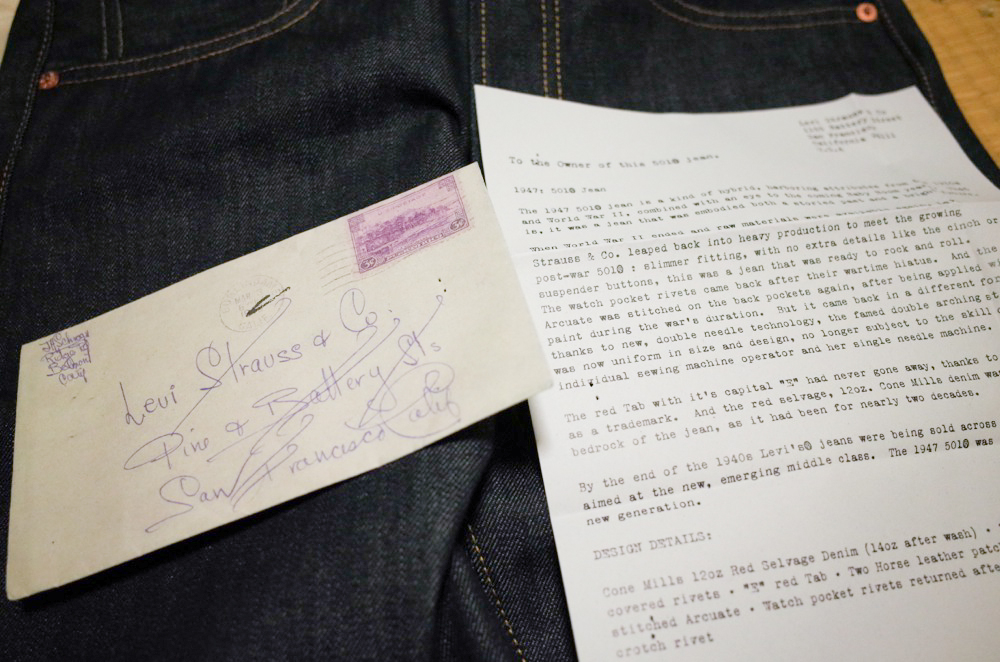 Levi Strauss & Co.
Pine & Battery Sts
San Francisco Calif
Levi Strauss & Co
San Francisco
California
U.S.A
To the Owner of this 501® jean.
1947: 501® Jean
The 1947 501® jean is a kind of hybrid, harboring attributes from
and World War II, combined with an eye to the coming
is, it was a jean that was embodied both a storied past and a
When World War II ended and raw materials were
Strauss & Co. leaped back into heavy production to meet the growing
post-war 501® : slimmer fitting, with no extra details like the cinch or
suspender buttons, this was a jean that was ready to rock and roll.
The watch pocket rivets came back after their wartime hiatus. And the
Arcuate was stitched on the back pockets again, after being applied wi
paint during the war's duration. But it came back in a different for
thanks to new, double needle technology, the famed double arching st
was now uniform in size and design, no longer subject to the skill o
individual sewing machine operator and her single needle machine.
The red Tab with it's capital "E" had never gone away, thanks to
as a trademark. And the red selvage, 12oz. Cone Mills denim was
bedrock of the jean, as it had been for nearly two decades.
By the end of the 1940s Levi's® jeans were being sold across
aimed at the new, emerging middle class. The 1947 501® was
new generation.
DESIGN DETAILS:
Cone Mills 12oz Red Selvage Denim (14oz after wash) •
covered rivets • "E" red Tab • Two Horse leather patc
stitched Arcuate • Watch pocket rivets returned afte
crotch rivet